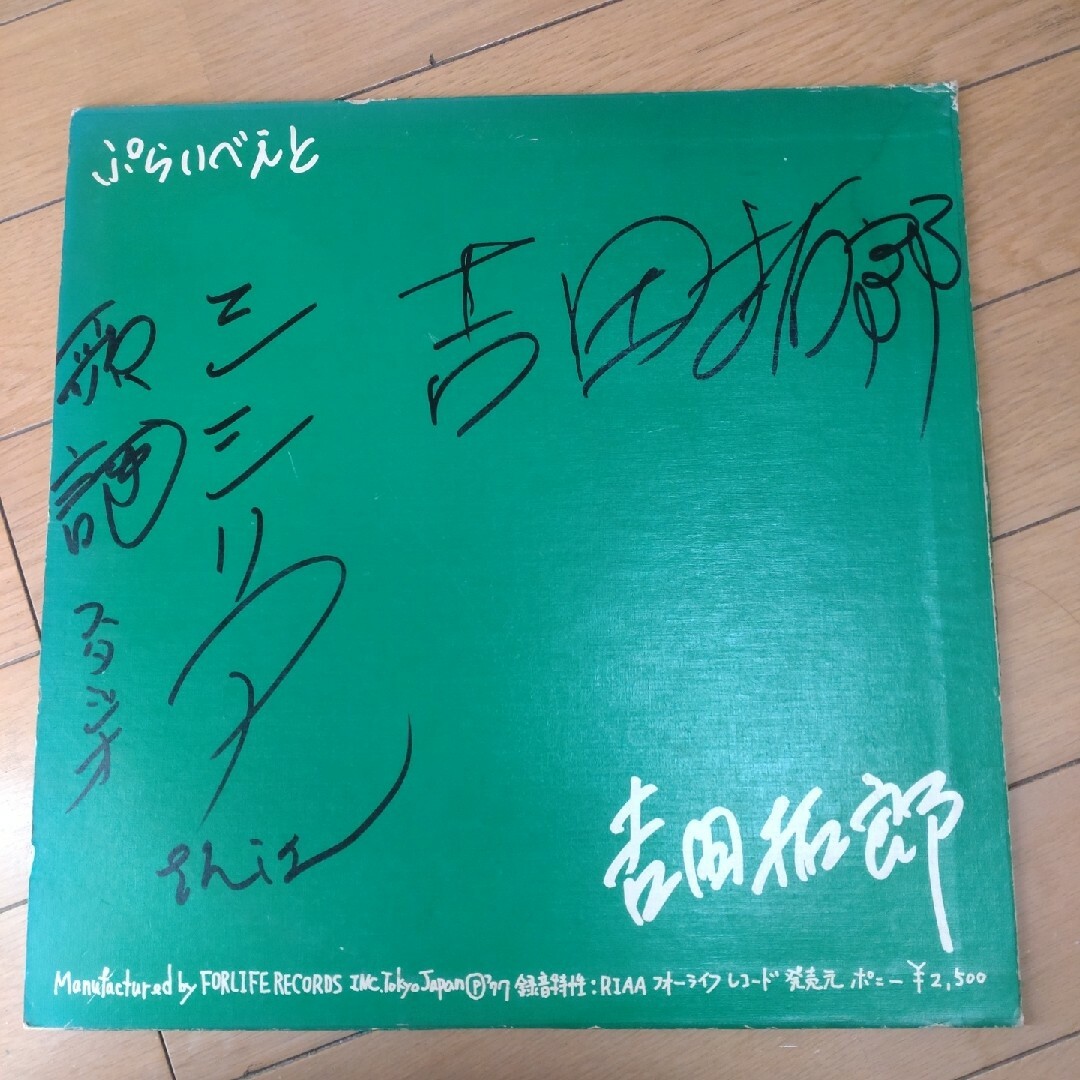 ぷらいべえと
吉田拓郎
歌謡
スタジオ
吉田拓郎
Manufactured by FORLIFE RECORDS INC. Tokyo Japan Ⓟ'77 録音特性:RIAA フォーライフ レコード 発売元 ポニー ¥2,500